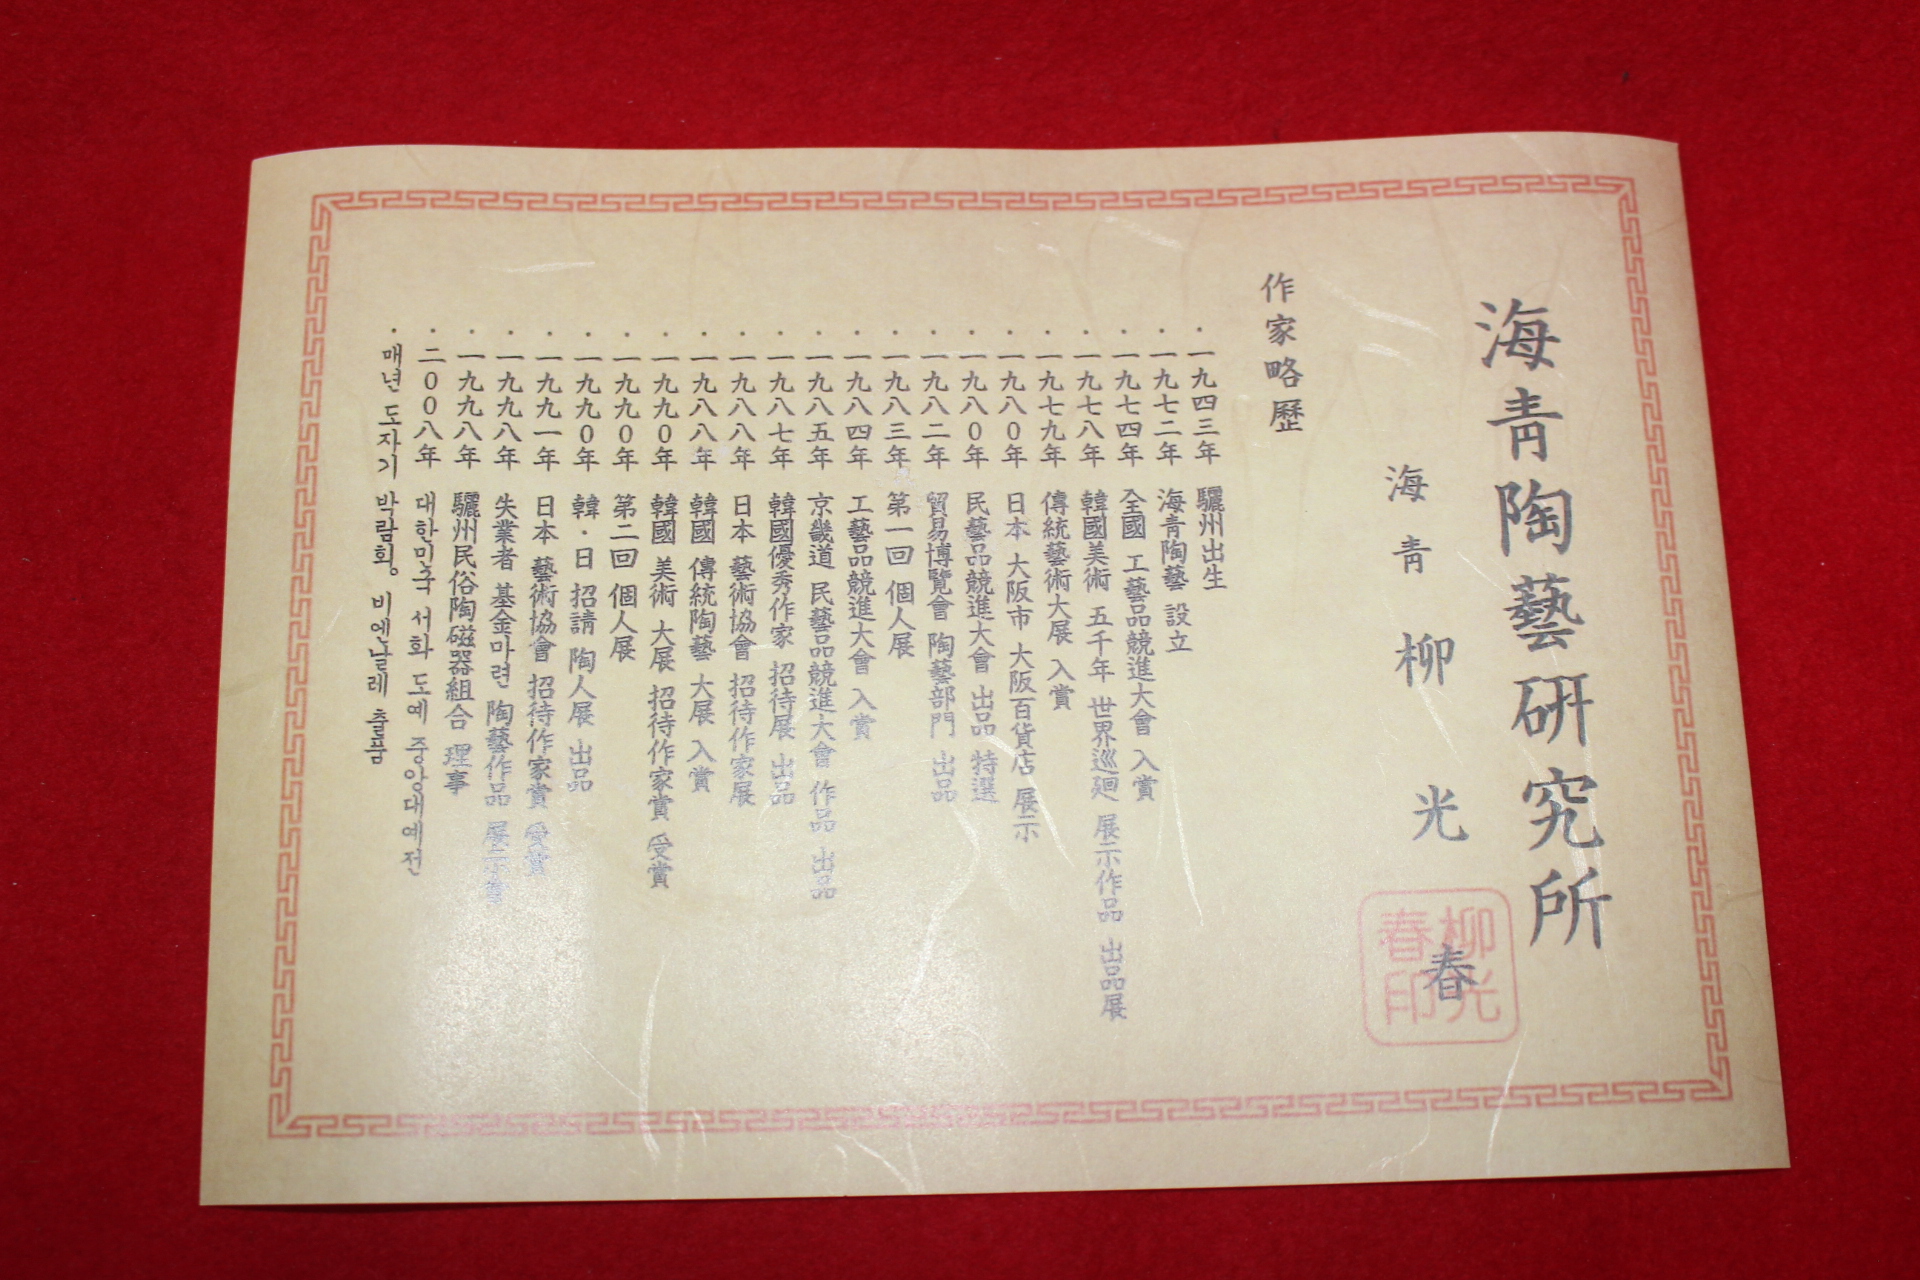 海青陶藝硏究所
海青 柳光春
柳光
春印
作家略歷
· 一九四三年 驪州出生
· 一九七二年 海青陶藝 設立
· 一九七四年 全國 工藝品競進大會 入賞
· 一九七八年 韓國美術 五千年 世界巡廻 展示作品 出品展
· 一九七九年 傳統藝術大展 入賞
· 一九八0年 日本 大阪市 大阪百貨店 展示
· 一九八0年 民藝品競進大會 出品 特選
· 一九八二年 貿易博覽會 陶藝部門 出品
· 一九八三年 第一回 個人展
· 一九八四年 工藝品競進大會 入賞
· 一九八五年 京畿道 民藝品競進大會 作品 出品
· 一九八七年 韓國優秀作家 招待展 出品
· 一九八八年 日本 藝術協會 招待作家展
· 一九八八年 韓國 傳統陶藝 大展 入賞
· 一九九0年 韓國 美術 大展 招待作家賞 受賞
· 一九九0年 第二回 個人展
· 一九九0年 韓·日 招請 陶人展 出品
· 一九九一年 日本 藝術協會 招待作家賞 受賞
· 一九九八年 失業者 基金마련 陶藝作品 展示會
· 一九九八年 驪州民俗陶磁器組合 理事
· 二00八年 대한민국 서화 도예 중앙대예전
· 매년 도자기 박람회。비엔날레 출품